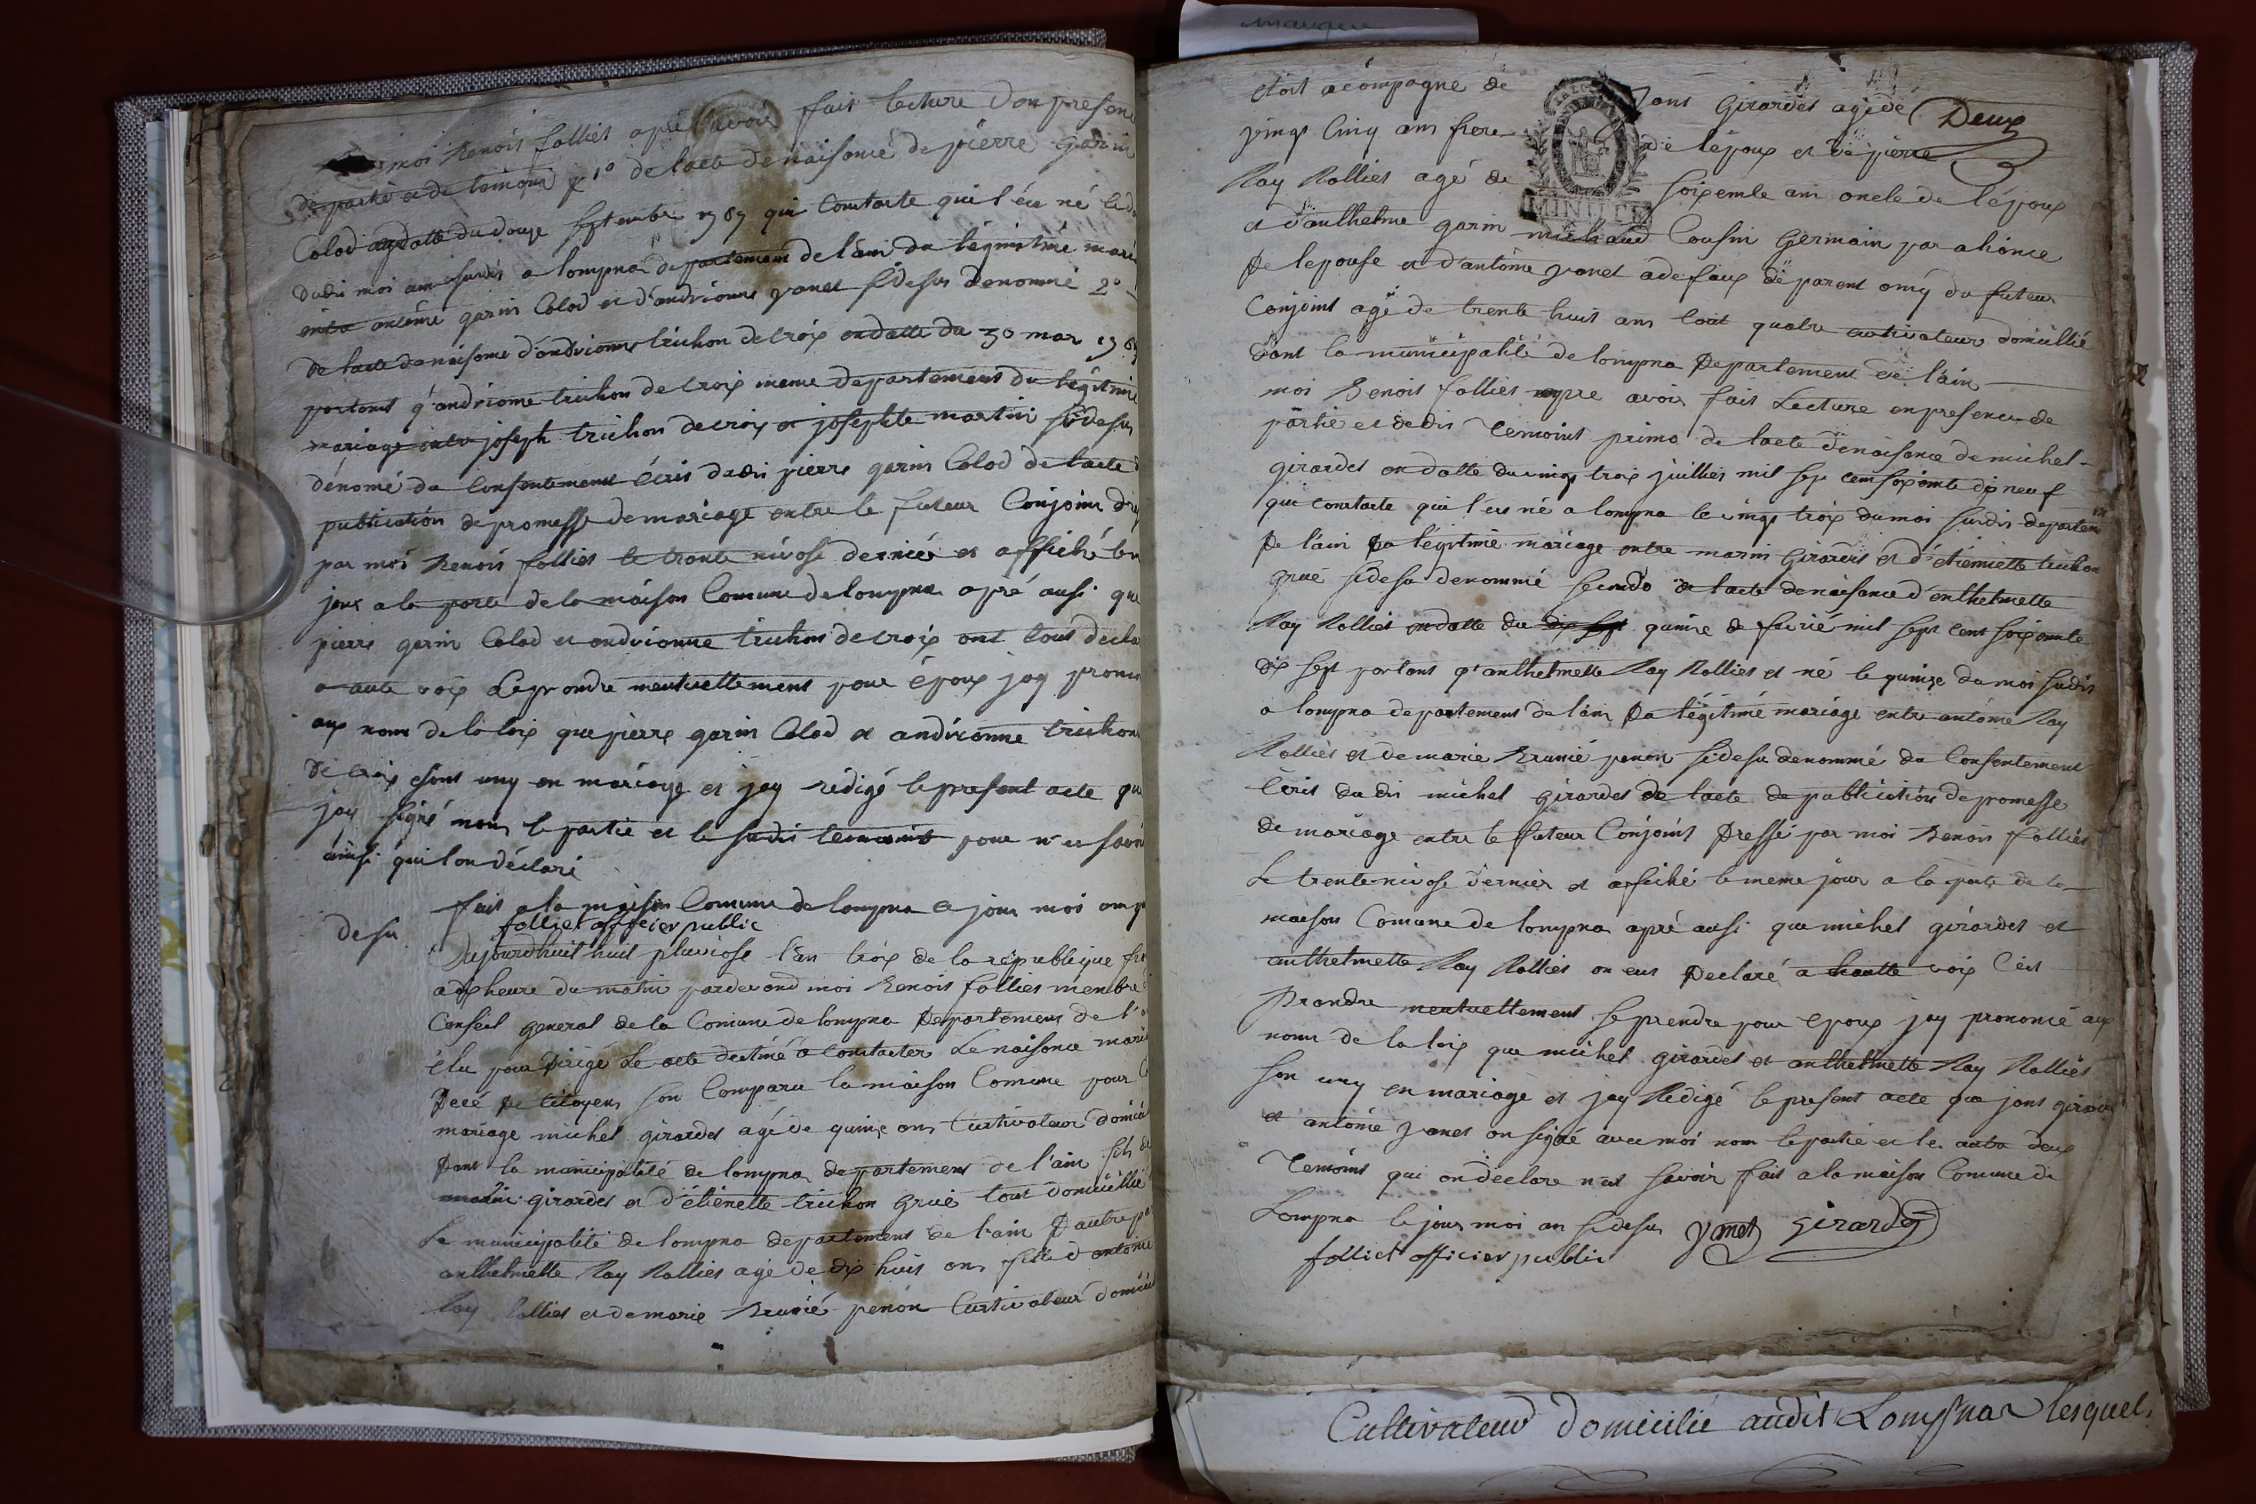 manque
moi Benois folliet apré avoir fait lecture don presen
de partie et de temoins 1° de l'acte de naisance de pierre garin
Colod du douze septembre 1769 qui Constate qui l'ée né le d
dudi moi an susdis a lompna departement de l'ain du légitime mari
entre antoine garin Colod et d'andrionne yanet si desu denomé 2°
de l'acte de naisance d'andrionne truchon de croix en datte du 30 mar
portant q'andrionne truchon de croix meme departement du légitime
mariage entre joseph truchon de croix et josephte martin si desu
dénomé du Consentement écris dudi pierre garin Colod de l'acte d
publication de promesse de mariage entre le futeur Conjoint
par moi Benois folliet le trente nivose dernié et affiché le
jour a la porte de la maison Comune de lompna apré ausi que
pierre garin Colod et andrionne truchon de croix ont tous decla
a aute voix se prendre mentuellement pour époux jay pronon
aux nom de la loix que pierre garin Colod et andrionne truchon
de croix sont uny en mariage et jay rédigé le present acte que
jay signé nom le partie et le sudis temoint pour n'ee savoi
ainsi qui l'on déclaré
fait a la maison Comune de lompna le jour moi an
desu folliet officier public
Dujourdhuit huit pluviose l'an troix de la république fr
a dix heure du matin pardevand moi Benois folliet membre d
Conseil general de la Comune de lompna Departement de l'
élu pour dirigé le acte destiné a Constater le naisance mari
decé de citoyens son Comparu la maison Comune pour
mariage michel girardet agé de quinze ans Curtivateur domicil
dant la municipalité de lompna departement de l'ain fils de
marin girardet et d'étienette truchon grué tous domicillié
le municipalité de lompna departement de l'ain D'autre pa
anthelmette Ray Rolliet agé de dix huit ans fille d'antoine
Ray Rolliet et de marie Brunié penon Curtivateur domicil
étoit acompagné de jant Girardet agé dé Deux
vingt Cinq ans frere de l'époux et de pierre
Ray Rolliet agé de soixente ans oncle de l'époux
et d'anthelme garin michaud Cousin Germain par aliance
de lepouse et d'antoine yanet a defaux de parent amy du futeur
Conjoint agé de trente huit ans tout quatre curtivateur domicillié
dant la municipalité de lompna Departement de l'ain
moi Benois folliet apre avoir fait Lecture en presence de
partie et de dis Temoint primo de l'acte de naisance de michel
girardet en datte du vingt troix juilliet mil sept cent soixante dix neuf
qui constate qui l'es né a lompna le vingt troix du moi susdis departem
de l'ain du légitime mariage entre marin Girardet et d'étienette truchon
grué si desu denommé secundo de l'acte de naisance d'enthelmette
Ray Rolliet en datte du dix sept quinze de fevrié mil sept cent soixante
dix sept portant q'anthelmette Ray Rolliet et né le quinze du moi sudis
a lompna departement de l'ain du légitime mariage entre antoine Ray
Rolliet et de marie Brunié penon si desu denommé du Consentement
écris du dis michel girardet de l'acte de publication de promesse
de mariage entre le futeur Conjoint dressé par moi Benois folliet
Le trente nivose dernier et affiché le meme jour a la porte de la
maison Comune de lompna apré ausi que michel girardet et
anthelmette Ray Rolliet on eus Declaré a hautte voix
Prandre mentuellement se prendre pour epoux jay prononcé aux
nom de la loix que michel girardet et anthelmette Ray Rolliet
son uny en mariage et jay Redigé le present acte que jant girardet
et antoine yanet on signé avec moi nom le partie et le autre deux
Temoint qui on declare n'es savoir fait a la maison Comune de
Lompna le jour moi an si desu yanet Girardet
folliet officier public
MINUTE
Cultivateur domicilié audit Lompnas lesquel